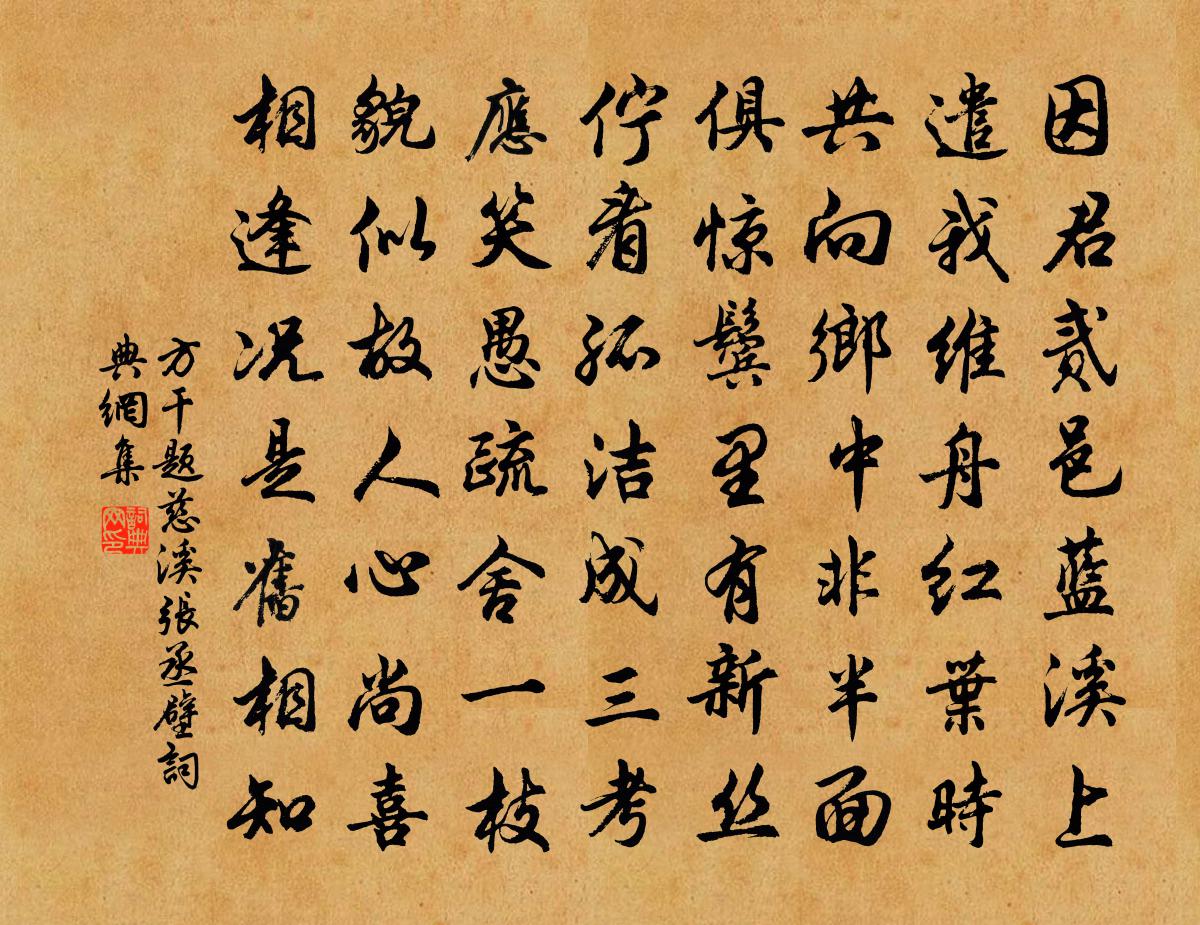 因君贰邑藍溪上
遣我維舟红葉時
共向鄉中非半面
俱惊鬓里有新丝
佇看孤洁成三考
應笑愚疏舍一枝
貌似故人心尚喜
相逢况是舊相知
方干题慈溪張丞壁詞
典網集
詞典